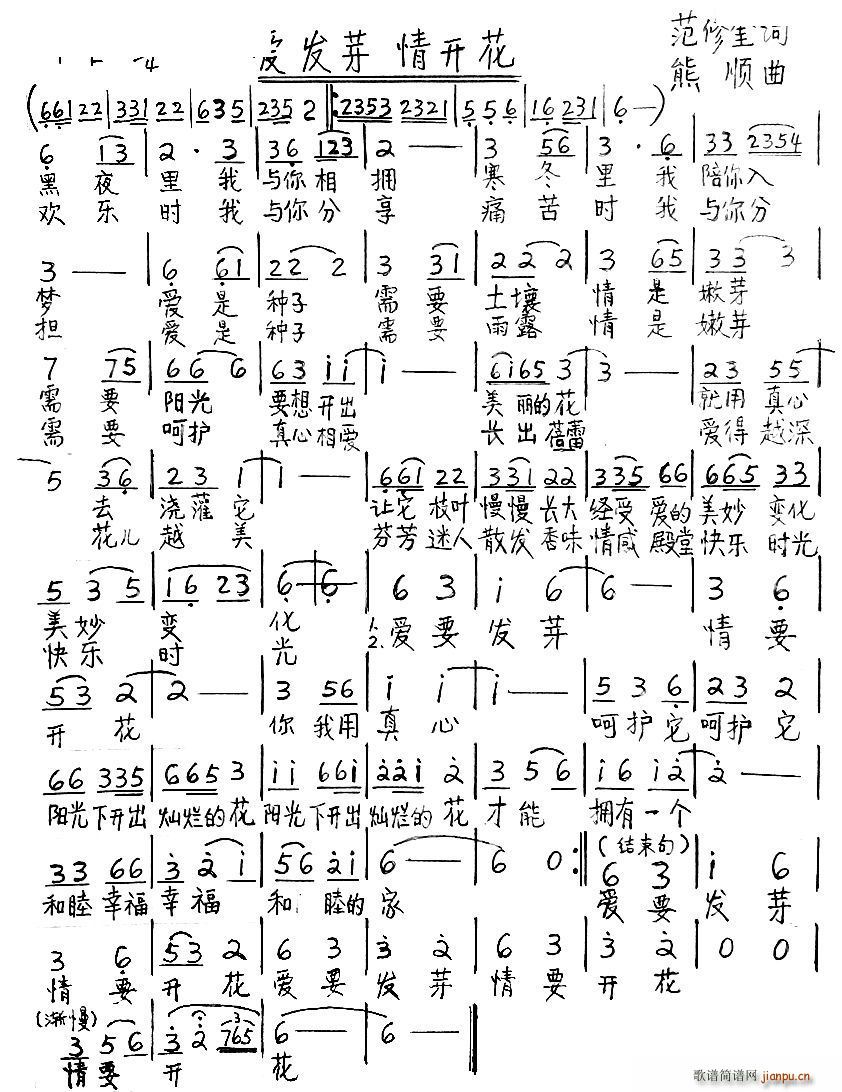 爱发芽 情开花
范修奎词
熊 顺曲
(661 22|331 22|635|235 2‖:2353 2321|5 5 6|16 231|6 —)
6 13|2 · 3|36 123|2 —|3 56|3 · 6|33 2354
黑 夜 里 我 与你 相 拥 寒 冬 里 我 陪你入
欢 乐 时 我 与你 分 享 痛 苦 时 我 与你分
3 —|6 61|22 2|3 31|22 2|3 65|33 3
梦 爱 是 种子 需 要 土壤 情 是 嫩芽
担 爱 是 种子 需 要 雨露 情 是 嫩芽
7 75|66 6|63 ii|i —|6i65 3|3 —|23 55
需 要 阳光 要想开出 美丽的花 就用真心
需 要 呵护 真心相爱 长出蓓蕾 爱得越深
5 36|23 1|1 —|661 22|331 22|335 66|665 33
去 浇灌 它 让它枝叶 慢慢长大 经受爱的 美妙变化
花儿 越 美 芬芳迷人 散发香味 情感殿堂 快乐时光
5 3 5|16 23|6 — 6|6 3|i 6|6 —|3 6
美妙 变 化 1.2. 爱 要 发 芽 情 要
快乐 时 光
53 2|2 —|3 56|i i|i —|5 3 6|23 2
开 花 你 我用 真 心 呵护它 呵护它
66 335|665 3|ii 66i|22i 2|3 56|i6 i2|2 —
阳光下开出 灿烂的花 阳光下开出 灿烂的花 才能 拥有一个
(结束句)
33 66|3 2 i|56 2i|6 —|6 0:‖6 3|i 6
和睦幸福 幸福 和睦的 家 爱 要 发 芽
3 6|53 2|6 3|3 2|6 3|3 2|0 0
情 要 开 花 爱 要 发 芽 情 要 开 花
(渐慢)
3 56|3 2 765|6 —|6 —‖
情要 开 花
歌谱简谱网
jianpu.cn